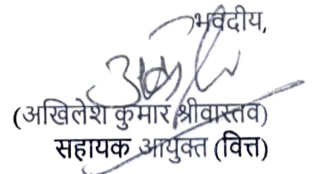 भवदीय,
(अखिलेश कुमार श्रीवास्तव)
सहायक आयुक्त (वित्त)